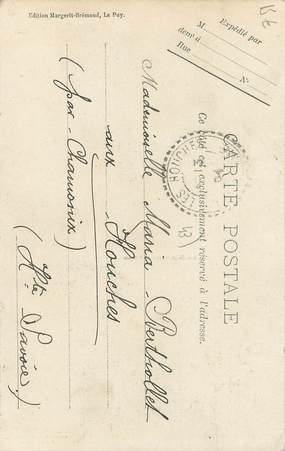 Edition Margerit-Brémond, Le Puy.
Expédié par
M
demt à
Rue
N°
CARTE POSTALE
Ce côté est exclusivement réservé à l'adresse.
LES HOUCHES
Mademoiselle Maria Berthollet
aux Houches
(par - Chamonix)
(Hte Savoie)